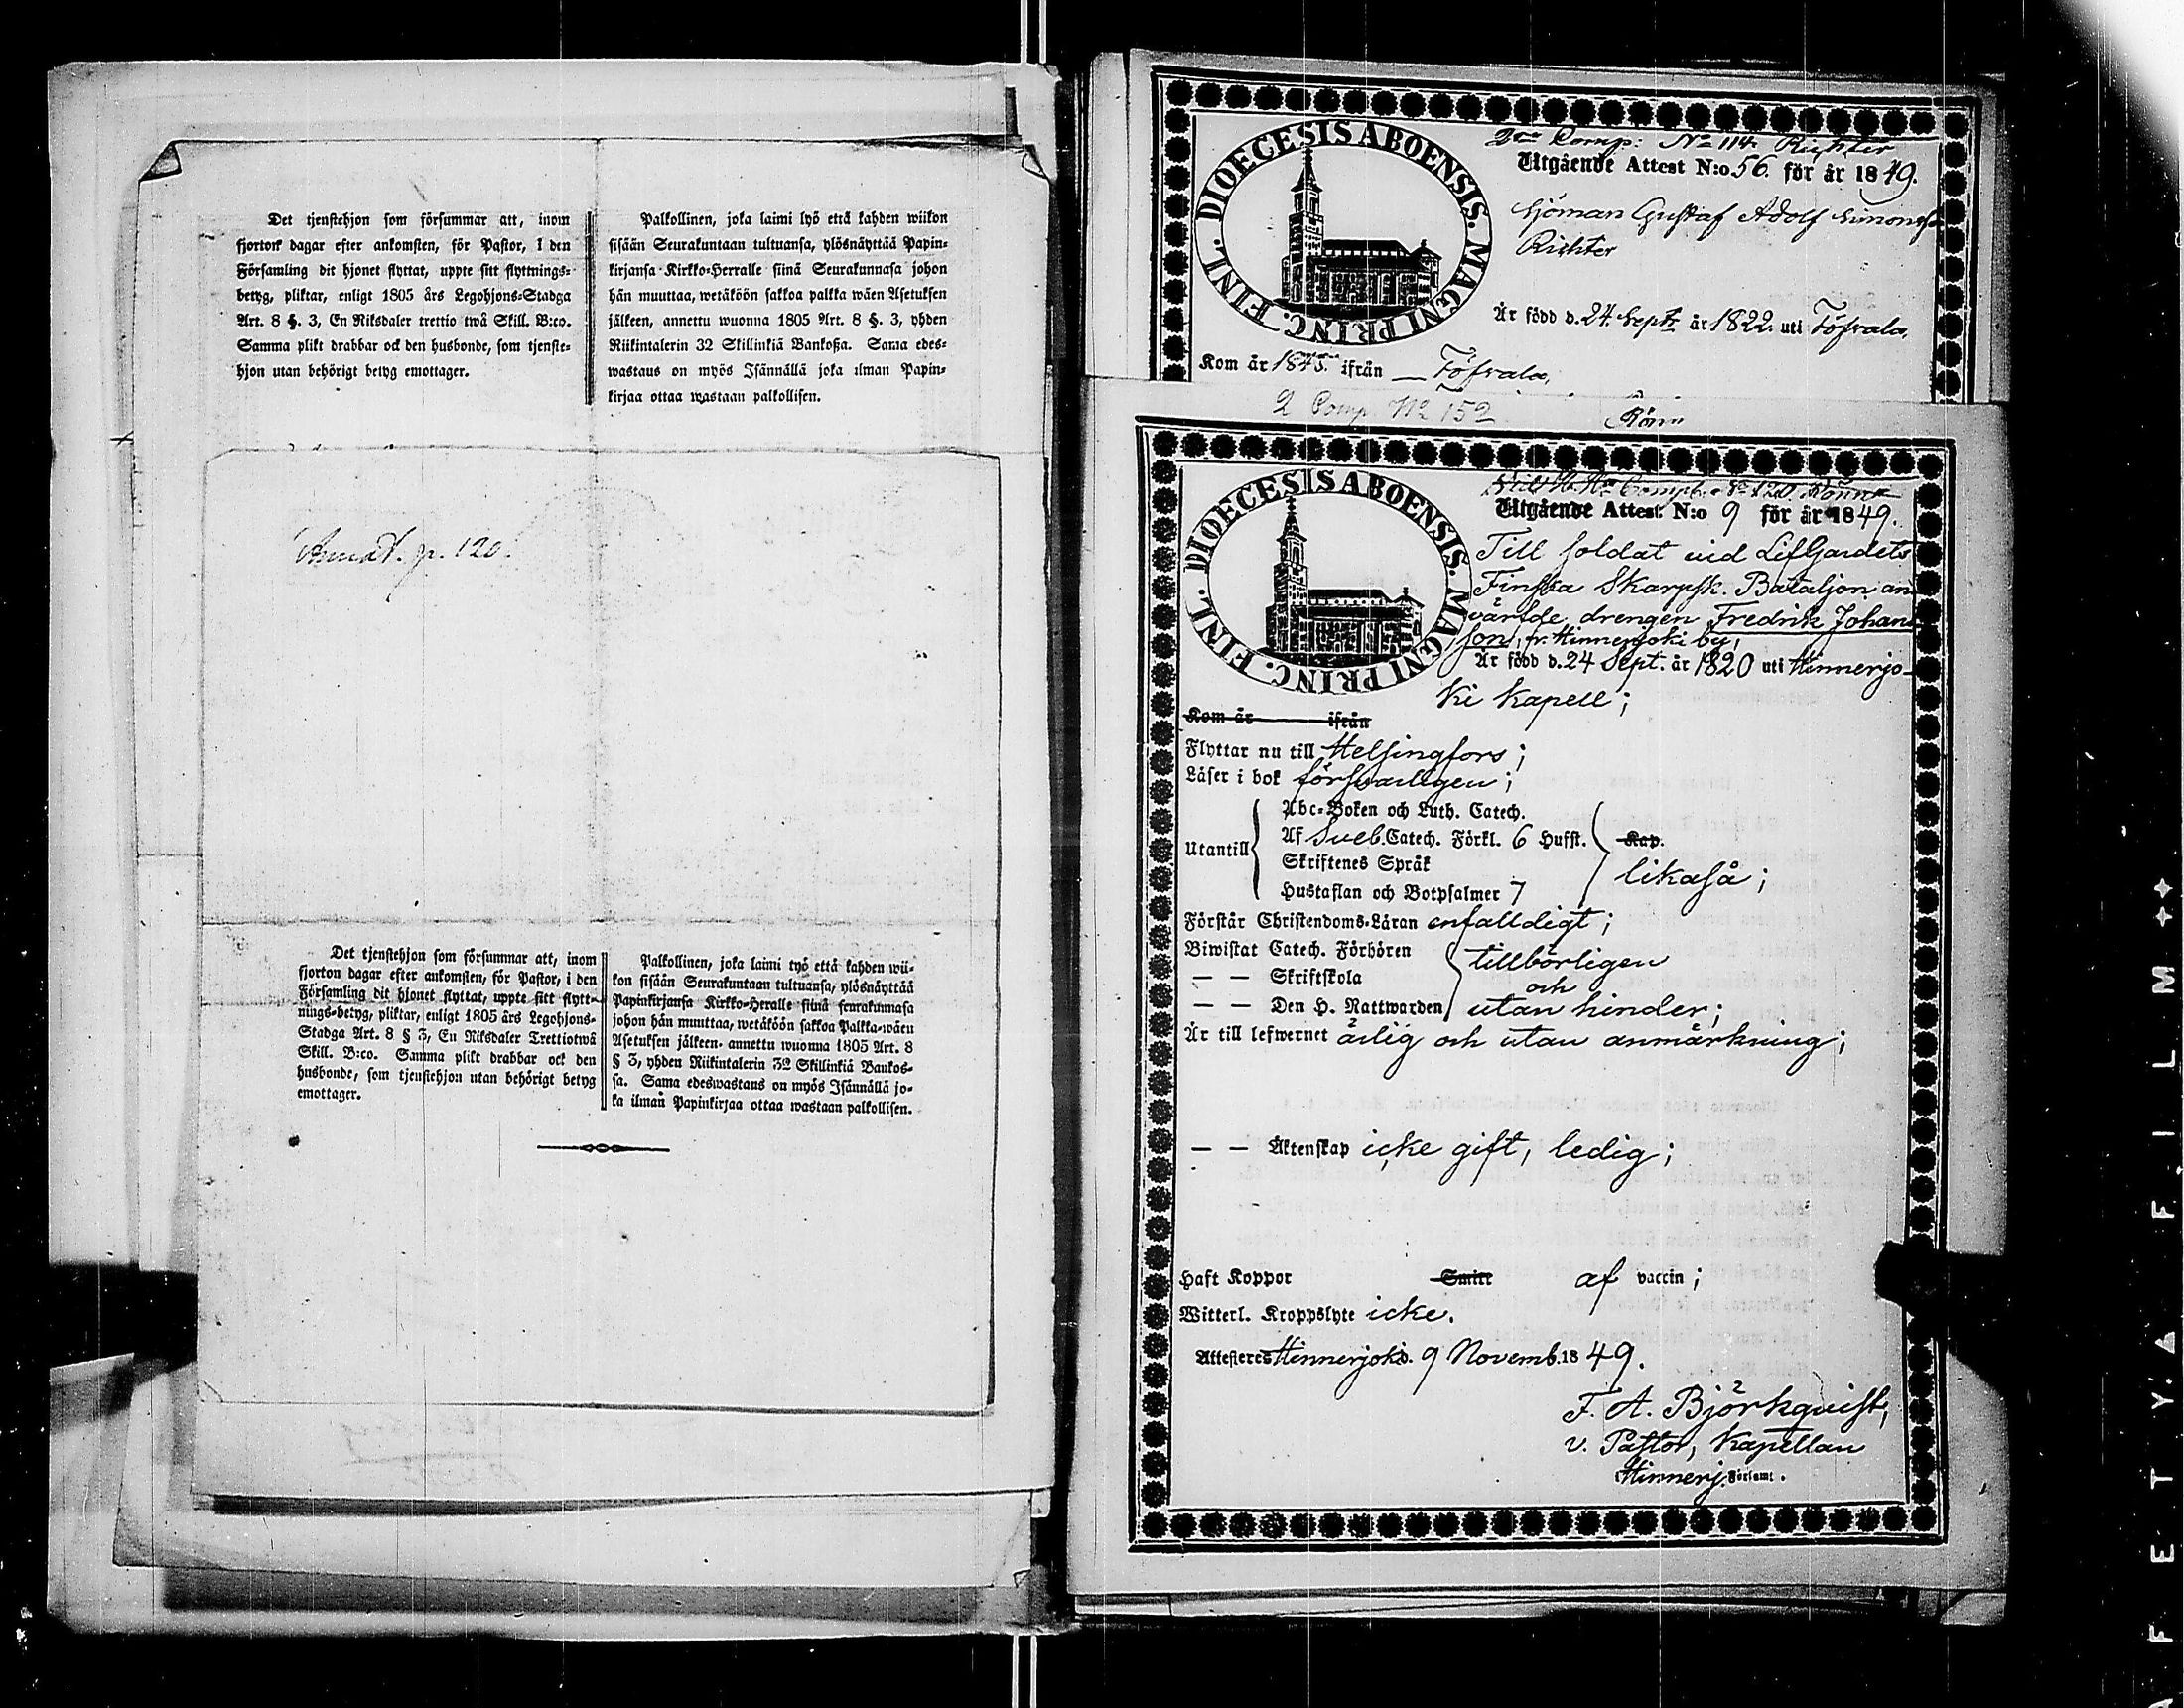 Det tjenstehjon som försummar att, inom
fjorton dagar efter ankomsten, för Pastor, i den
Församling dit hjonet flyttat, uppte sitt flyttnings-
betyg, pliktar, enligt 1805 års Legohjons-Stadga
Art. 8 §. 3, En Riksdaler trettio twå Skill. B:co.
Samma plikt drabbar ock den husbonde, som tjenste-
hjon utan behörigt betyg emottager.
Palkollinen, joka laimi lyö että kahden wiikon
sisään Seurakuntaan tultuansa, ylösnäyttää Papin-
kirjansa Kirkko-Herralle siinä Seurakunnasa johon
hän muuttaa, wetäköön sakkoa palkka wäen Asetuksen
jälkeen, annettu wuonna 1805 Art. 8 §. 3, yhden
Riikintalerin 32 Skillinkiä Bankoßa. Sama edes-
wastaus on myös Isännällä joka ilman Papin-
kirjaa ottaa wastaan palkollisen.
p. 120.
Det tjenstehjon som försummar att, inom
fjorton dagar efter ankomsten, för Pastor, i den
Församling dit hjonet flyttat, uppte sitt flytt-
nings-betyg, pliktar, enligt 1805 års Legohjons-
Stadga Art. 8 § 3, En Riksdaler Trettiotwå
Skill. B:co. Samma plikt drabbar ock den
husbonde, som tjenstehjon utan behörigt betyg
emottager.
Palkollinen, joka laimi työ että kahden wii-
kon sisään Seurakuntaan tultuansa, ylösnäyttää
Papinkirjansa Kirkko-Heralle siinä seurakunnasa
johon hän muuttaa, wetäköön sakkoa Palkka-wäen
Asetuksen jälkeen. annettu wuonna 1805 Art. 8
§ 3, yhden Riikintalerin 32 Skillinkiä Bankos-
sa. Sama edeswastaus on myös Isännällä jo-
ka ilman Papinkirjaa ottaa wastaan palkollisen.
Comp: No 114. Richter
DIOECESIS ABOENSIS. MAGNI PRINC. FINL.
Utgående Attest N:o 56. för år 1849.
Sjöman Gustaf Adolf Simonss
Richter
Är född d. 24. Sept. år 1822. uti Töfsala,
Kom år 1845. ifrån Töfsala,
2 Comp. No 152 Rönn
Comp. No 120. Rönn
DIOECESIS ABOENSIS. MAGNI PRINC. FINL.
Utgående Attest N:o 9 för år 1849.
Till soldat vid LifGardets
Finska Skarpsk. Bataljon an
värfde drengen Fredrik Johans
son, fr. Hinnerjoki by,
Är född d. 24 Sept. år 1820 uti Hinnerjo-
ki kapell;
Kom år ifrån
Flyttar nu till Helsingfors;
Läser i bok försvarligen;
Utantill
Abc-Boken och Luth. Catech.
Af Sveb. Catech. Förkl. 6 Hufst.
Skriftenes Språk
Hustaflan och Botpsalmer 7
Kap.
likaså;
Förstår Christendoms-Läran enfalldigt;
Biwistat Catech. Förhören tillbörligen
— — Skriftskola och
— — Den H. Nattwarden utan hinder;
Är till lefwernet ärlig och utan anmärkning;
— — Äktenskap icke gift, ledig;
Haft Koppor Smitt af vaccin;
Witterl. Kroppslyte icke.
Attesteres Hinnerjoki d. 9 Novemb. 1849.
F. A. Björkqvist,
v. Pastor, Kapellan
Hinnerj. Församl.
FILM